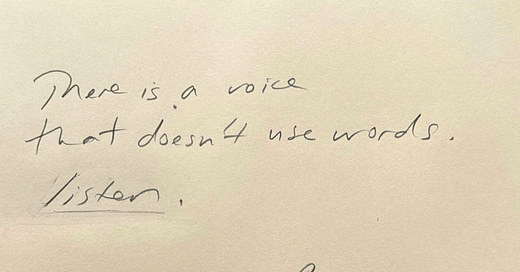 There is a voice
that doesn't use words.
listen.